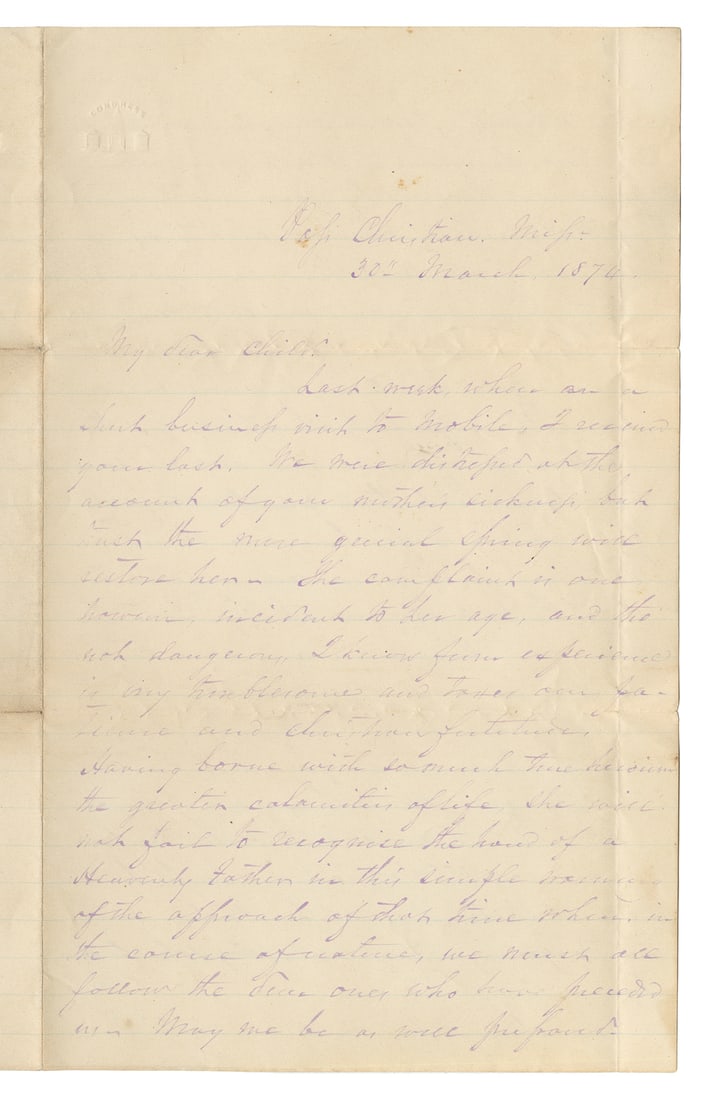 CONGRESS
Pass Christian. Miss.
30" March, 1874.
My dear Child
Last week, when on a
short business visit to Mobile, I received
your last. We were distressed at the
account of your mother's sickness, but
trust the more genial spring will
restore her – The complaint is one
however, incident to her age, and tho
not dangerous, I know from experience
is very troublesome and taxes our pa-
tience and Christian fortitude.
Having borne with so much true heroism
the greater calamities of life, she will
not fail to recognise the hand of a
Heavenly Father in this simple warning
of the approach of that time when, in
the course of nature, we must all
follow the dear ones who have preceded
us – May we be as well prepared –